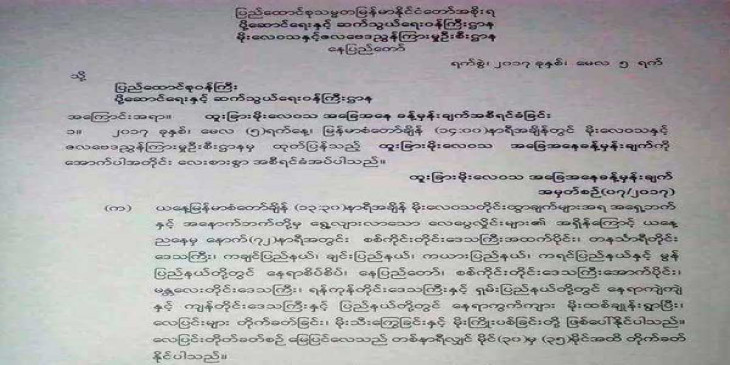 ပြည်ထောင်စုသမ္မတမြန်မာနိုင်ငံတော်အစိုးရ
ပို့ဆောင်ရေးနှင့် ဆက်သွယ်ရေးဝန်ကြီးဌာန
မိုးလေဝသနှင့်ဇလဗေဒညွှန်ကြားမှုဦးစီးဌာန
နေပြည်တော်
ရက်စွဲ၊ ၂၀၁၇ ခုနှစ်၊ မေလ ၅ ရက်
သို့
ပြည်ထောင်စုဝန်ကြီး
ပို့ဆောင်ရေးနှင့် ဆက်သွယ်ရေးဝန်ကြီးဌာန
အကြောင်းအရာ။ ထူးခြားမိုးလေဝသ အခြေအနေ ခန့်မှန်းချက်အစီရင်ခံခြင်း
၁။ ၂၀၁၇ ခုနှစ်၊ မေလ (၅)ရက်နေ့၊ မြန်မာစံတော်ချိန် (၁၄:၀၀)နာရီအချိန်တွင် မိုးလေဝသနှင့်
ဇလဗေဒညွှန်ကြားမှုဦးစီးဌာနမှ ထုတ်ပြန်သည့် ထူးခြားမိုးလေဝသ အခြေအနေခန့်မှန်းချက်ကို
အောက်ပါအတိုင်း လေးစားစွာ အစီရင်ခံအပ်ပါသည်။
ထူးခြားမိုးလေဝသ အခြေအနေခန့်မှန်းချက်
အမှတ်စဉ်(၀၇/၂၀၁၇)
(က) ယနေ့မြန်မာစံတော်ချိန် (၁၃:၃၀)နာရီအချိန် မိုးလေဝသတိုင်းထွာချက်များအရ အရှေ့ဘက်
နှင့် အနောက်ဘက်တို့မှ ရွေ့လျားလာသော လေပွေလှိုင်းများ၏ အရှိန်ကြောင့် ယနေ့
ညနေမှ နောက်(၇၂)နာရီအတွင်း စစ်ကိုင်းတိုင်းဒေသကြီးအထက်ပိုင်း၊ တနင်္သာရီတိုင်း
ဒေသကြီး၊ ကချင်ပြည်နယ်၊ ချင်းပြည်နယ်၊ ကယားပြည်နယ်၊ ကရင်ပြည်နယ်နှင့် မွန်
ပြည်နယ်တို့တွင် နေရာစိပ်စိပ်၊ နေပြည်တော်၊ စစ်ကိုင်းတိုင်းဒေသကြီးအောက်ပိုင်း၊
မန္တလေးတိုင်းဒေသကြီး၊ ရန်ကုန်တိုင်းဒေသကြီးနှင့် ရှမ်းပြည်နယ်တို့တွင် နေရာကျဲကျဲ
နှင့် ကျန်တိုင်းဒေသကြီးနှင့် ပြည်နယ်တို့တွင် နေရာကွက်ကျား မိုးထစ်ချုန်းရွာပြီး၊
လေပြင်းများ တိုက်ခတ်ခြင်း၊ မိုးသီးကြွေခြင်းနှင့် မိုးကြိုးပစ်ခြင်းတို့ ဖြစ်ပေါ်နိုင်ပါသည်။
လေပြင်းတိုက်ခတ်စဉ် မြေပြင်လေသည် တစ်နာရီလျှင် မိုင်(၃၀)မှ (၃၅)မိုင်အထိ တိုက်ခတ်
နိုင်ပါသည်။